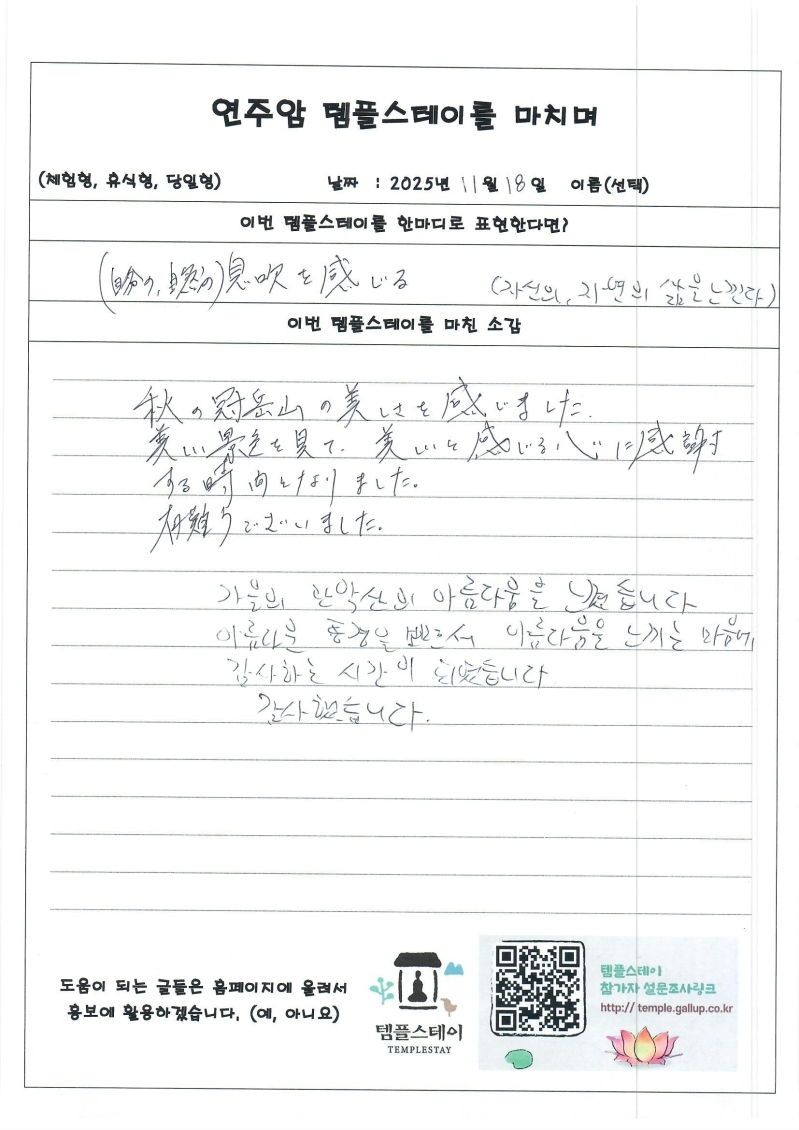 연주암 템플스테이를 마치며
(체험형, 휴식형, 당일형) 날짜 : 2025년 11월 18일 이름(선택)
이번 템플스테이를 한마디로 표현한다면?
(自分の, 自然の)息吹を感じる (자신의, 자연의 삶을 느낀다)
이번 템플스테이를 마친 소감
秋の冠岳山の美しさを感じました.
美しい景色を見て、美しいと感じる心に感謝
する時間となりました。
有難うございました。
가을의 관악산의 아름다움을 느꼈습니다
아름다운 풍경을 보면서 아름다움을 느끼는 마음에
감사하는 시간이 되었습니다
감사했습니다.
도움이 되는 글들은 홈페이지에 올려서
홍보에 활용하겠습니다. (예, 아니요)
템플스테이
TEMPLESTAY
템플스테이
참가자 설문조사링크
http:// temple.gallup.co.kr